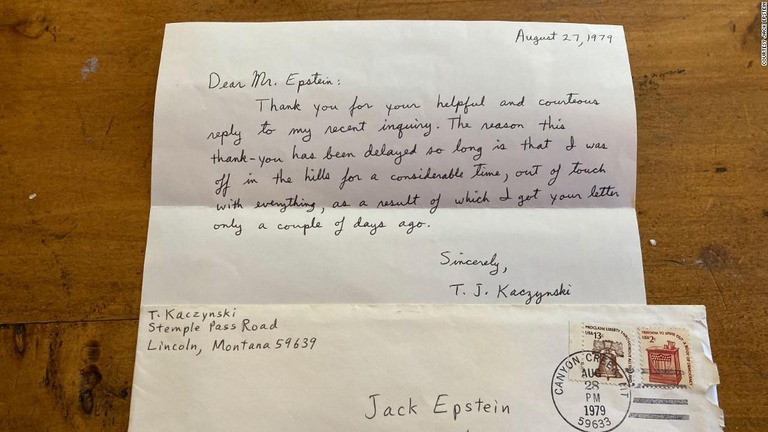 August 27, 1979
Dear Mr. Epstein:
Thank you for your helpful and courteous
reply to my recent inquiry. The reason this
thank-you has been delayed so long is that I was
off in the hills for a considerable time, out of touch
with everything, as a result of which I got your letter
only a couple of days ago.
Sincerely,
T. J. Kaczynski
T. Kaczynski
Stemple Pass Road
Lincoln, Montana 59639
Jack Epstein
PROCLAIM LIBERTY THROUGHOUT
USA 13c
USA 2c
CANYON CREEK
AUG
28
PM
1979
59633
COURTESY JACK EPSTEIN
CNN